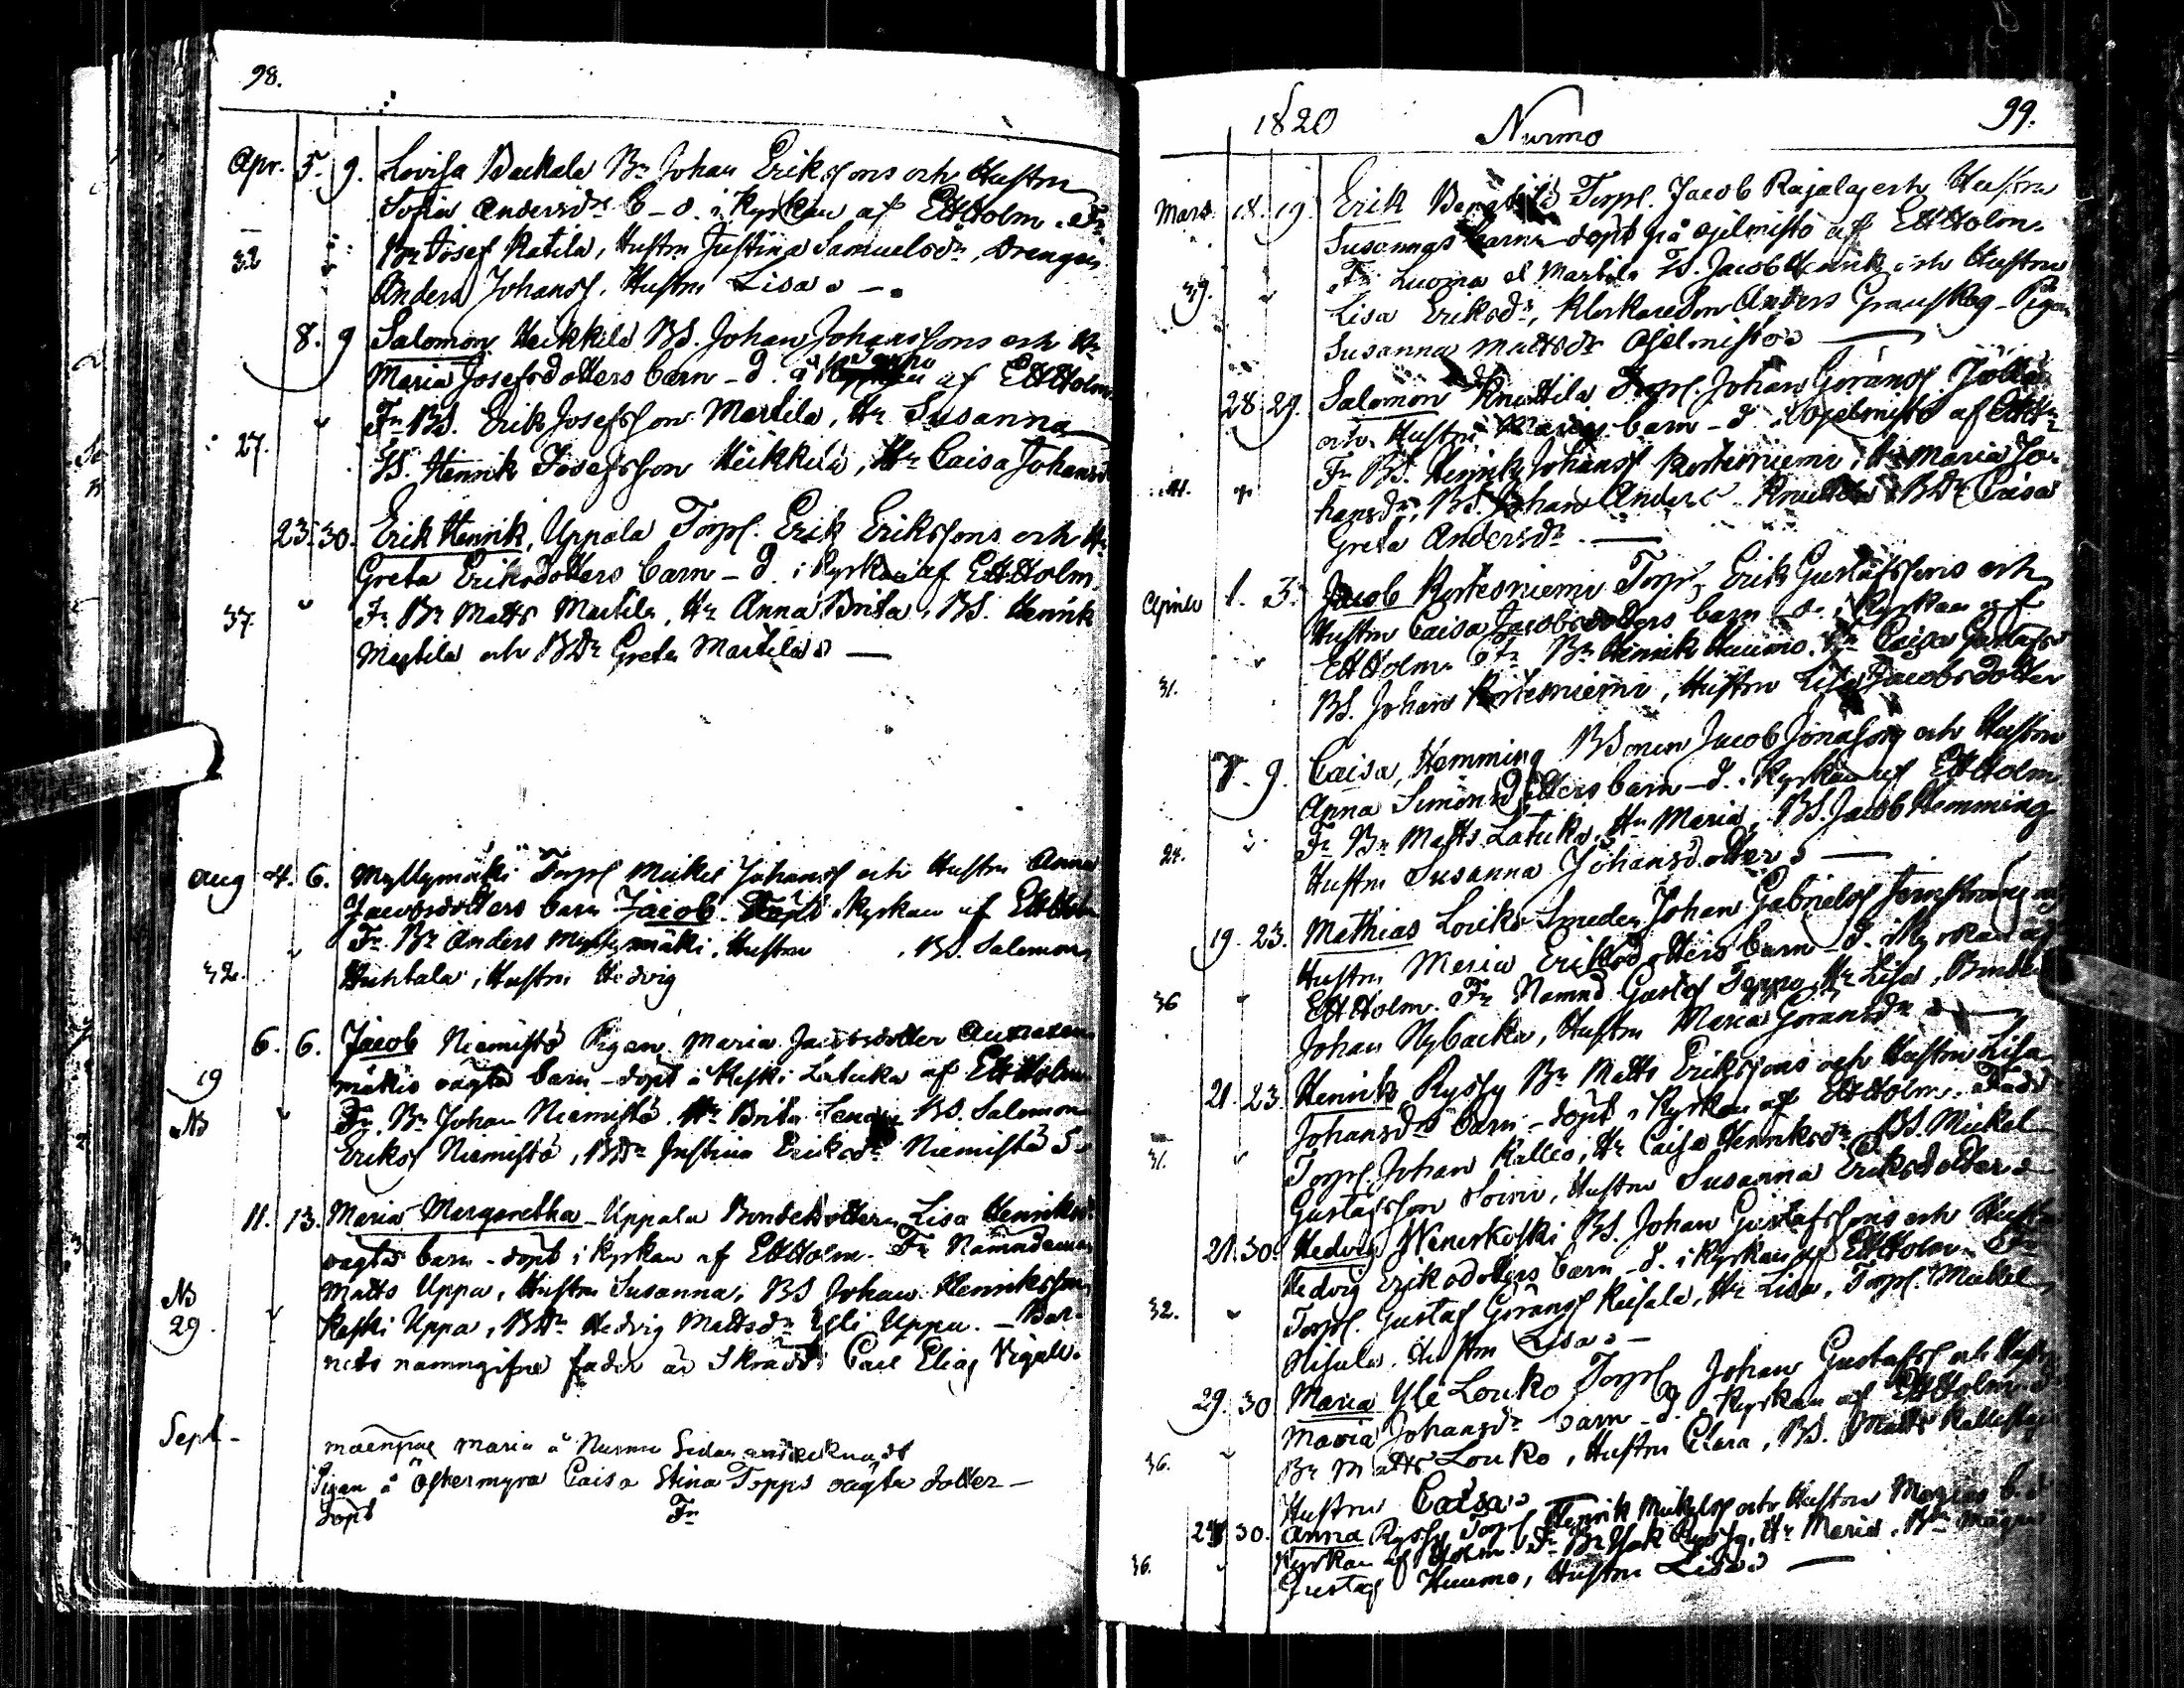 98.
Apr. 5. 9. Lovisa Backala Bn Johan Erikssons och Hustru
Sofia Andersdrs b - d. i Kyrkan af EHHolm. Fr.
32 Bn Josef Katila, Hustru Justina Samuelsdr, Drengen
Anders Johanss. Hustru Lisa. -
8. 9 Salomon Heikkilä BS. Johan Johanssons och Hu
Maria Josefsdotters barn - d. å af EHHolm
Fr BS. Erik Josefsson Martila, Hu Susanna
27. BS. Henrik Josefsson Heikkilä, Hu Caisa Johansd
23. 30. Erik Henrik, Uppala Torp. Erik Erikssons och Hu
Greta Eriksdotters barn - d. i Kyrkan af EHHolm.
37. Fr Bn Matts Martila, Hu Anna Brita, BS. Henrik
Martila och BDr Greta Martila -
Aug 4. 6. Myllymäki Torp Mickel Johanss och Hustru Anna
Jacobsdotters barn Jacob Döpt i Kyrkan af EHHolm
Fr. Bn Anders Myllymäki, Hustru , BS. Salomon
32. Huhtala, Hustru Hedvig
6. 6. Jacob Niemistö Pigan Maria Jacobsdotter
19 mäkis oägta barn - döpt å Keski Latuka af EHHolm
NB Fr. Bn Johan Niemistö Hu Brita BS. Salomon
Erikss Niemistö, BDr Justina Eriksdr Niemistö
11. 13. Maria Margaretha Uppala Bondedottern Lisa Henriksd
oägta barn - döpt i Kyrkan af EHHolm. Fr Nämndeman
NB Matts Uppa, Hustru Susanna, BS Johan Henriksson
29. Keski Uppa, BDr Hedvig Mattsdr Yli Uppa. - Bar-
nets namngifne fader är Skrädd: Carl Elias
Sept - Maria å Nurmo Sidan antecknadt
Pigan å Östermyra Caisa Stina Topps oägta dotter -
döpt Fr
1820 Nurmo 99.
Mars 18. 19. Erik Torp. Jacob Rajala och Hustru
Susannas barn - döpt på Ojelmisto af EHHolm.
39. Fr Luoma el Martila BS. Jacob Henrik och Hustru
Lisa Eriksdr, Klockaresson Anders Granskog - Pigan
Susanna Mattsdr Ojelmisto -
28. 29. Salomon Knuttila Torp. Johan Göranss
och Hustru Marias barn - d. i Ojelmisto af EHHm
Fr BS. Henrik Johanss Kortesniemi, Hu Maria Jo-
hansdr, BS. Johan Anderss Knuttila, BDr Caisa
Greta Andersdr. -
April 1. 3. Jacob Kortesniemi Torp. Erik Gustafssons och
Hustru Caisa Jacobsdotters barn - d. i Kyrkan af
EHHolm Fr. Bn Henrik Huumo, Hu Caisa Gustafsd
31. BS. Johan Kortesniemi, Hustru Lisa Jacobsdotter
7. 9. Caisa, Hemming BSonen Jacob Jonasson och Hustru
Anna Simonsdotters barn - d. i Kyrkan af EHHolm
24. Fr Bn Matts Latuka, Hu Maria, BS. Jacob Hemming
Hustru Susanna Johansdotter -
19. 23. Mathias Louko Smeden Johan Gabrielss
Hustru Maria Eriksdotters barn - d. i Kyrkan af
36 EHHolm. Fr Nämnd. Gustaf Toppo, Hu Lisa,
Johan Nybacka, Hustru Maria Göransdr -
21. 23. Henrik Ryssy Bn Matts Erikssons och Hustru Lisa
Johansdrs barn - döpt i Kyrkan af EHHolm. Fadd:
31. Torp. Johan Kallio, Hu Caisa Henriksdr BS. Mickel
Gustafsson Soini, Hustru Susanna Eriksdotter
21. 30. Hedvig Wenerkoski BS. Johan Gustafssons och Hustru
Hedvig Eriksdotters barn - d. i Kyrkan af EHHolm Fr
32. Torp. Gustaf Göranss Keisala, Hu Lisa, Torp. Mickel
Nisula. Hustru Lisa -
29. 30 Maria Yli Louko Torp Johan Gustafss och Hustru
Maria Johansdr barn - d. i Kyrkan af EHHolm
36. Bn Matts Louko, Hustru Clara, BS. Matts
Hustru Caisa
30. Anna Ryssy Torp. Henrik Mickelss och Hustru Marias b. d
36. Kyrkan af Holm. Fr Bn Isak Ryssy, Hu Maria,
Gustaf Huumo, Hustru Lisa -